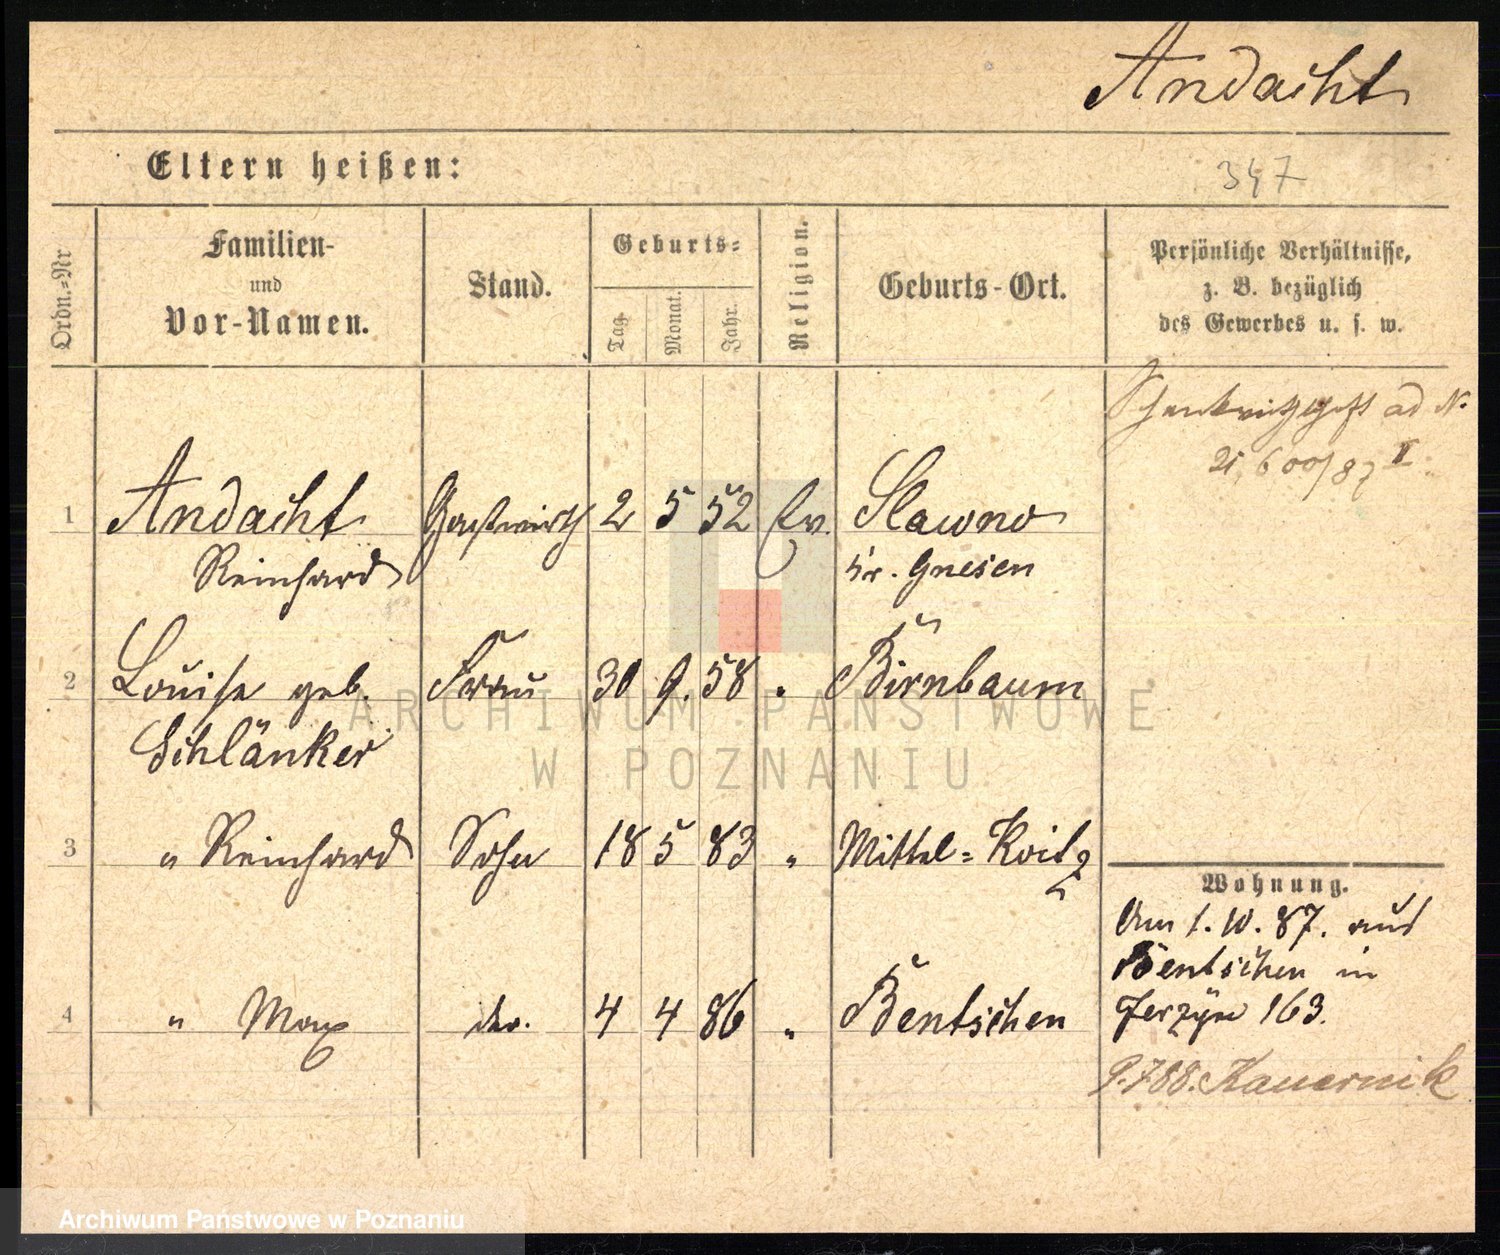 Andacht
Eltern heißen:
347
Ordn.=Nr
Familien-
und
Vor-Namen.
Stand.
Geburts=
Tag.
Monat.
Jahr.
Religion.
Geburts-Ort.
Persönliche Verhältnisse,
z. B. bezüglich
des Gewerbes u. s. w.
ad N.
21,600/87 II
1 Andacht Gastwirth 2 5 52 Ev. Slawno
Reinhard Kr. Gnesen
2 Louise geb. Frau 30 9. 58 " Birnbaum
Schlänker
3 " Reinhard Sohn 18 5 83 " Mittel=Koitz
4 " Max do. 4 4 86 " Bentschen
Wohnung.
Am 1. 10. 87. aus
Bentschen in
Jerzyce 163.
P. 788. Kauernik
ARCHIWUM PAŃSTWOWE
W POZNANIU
Archiwum Państwowe w Poznaniu